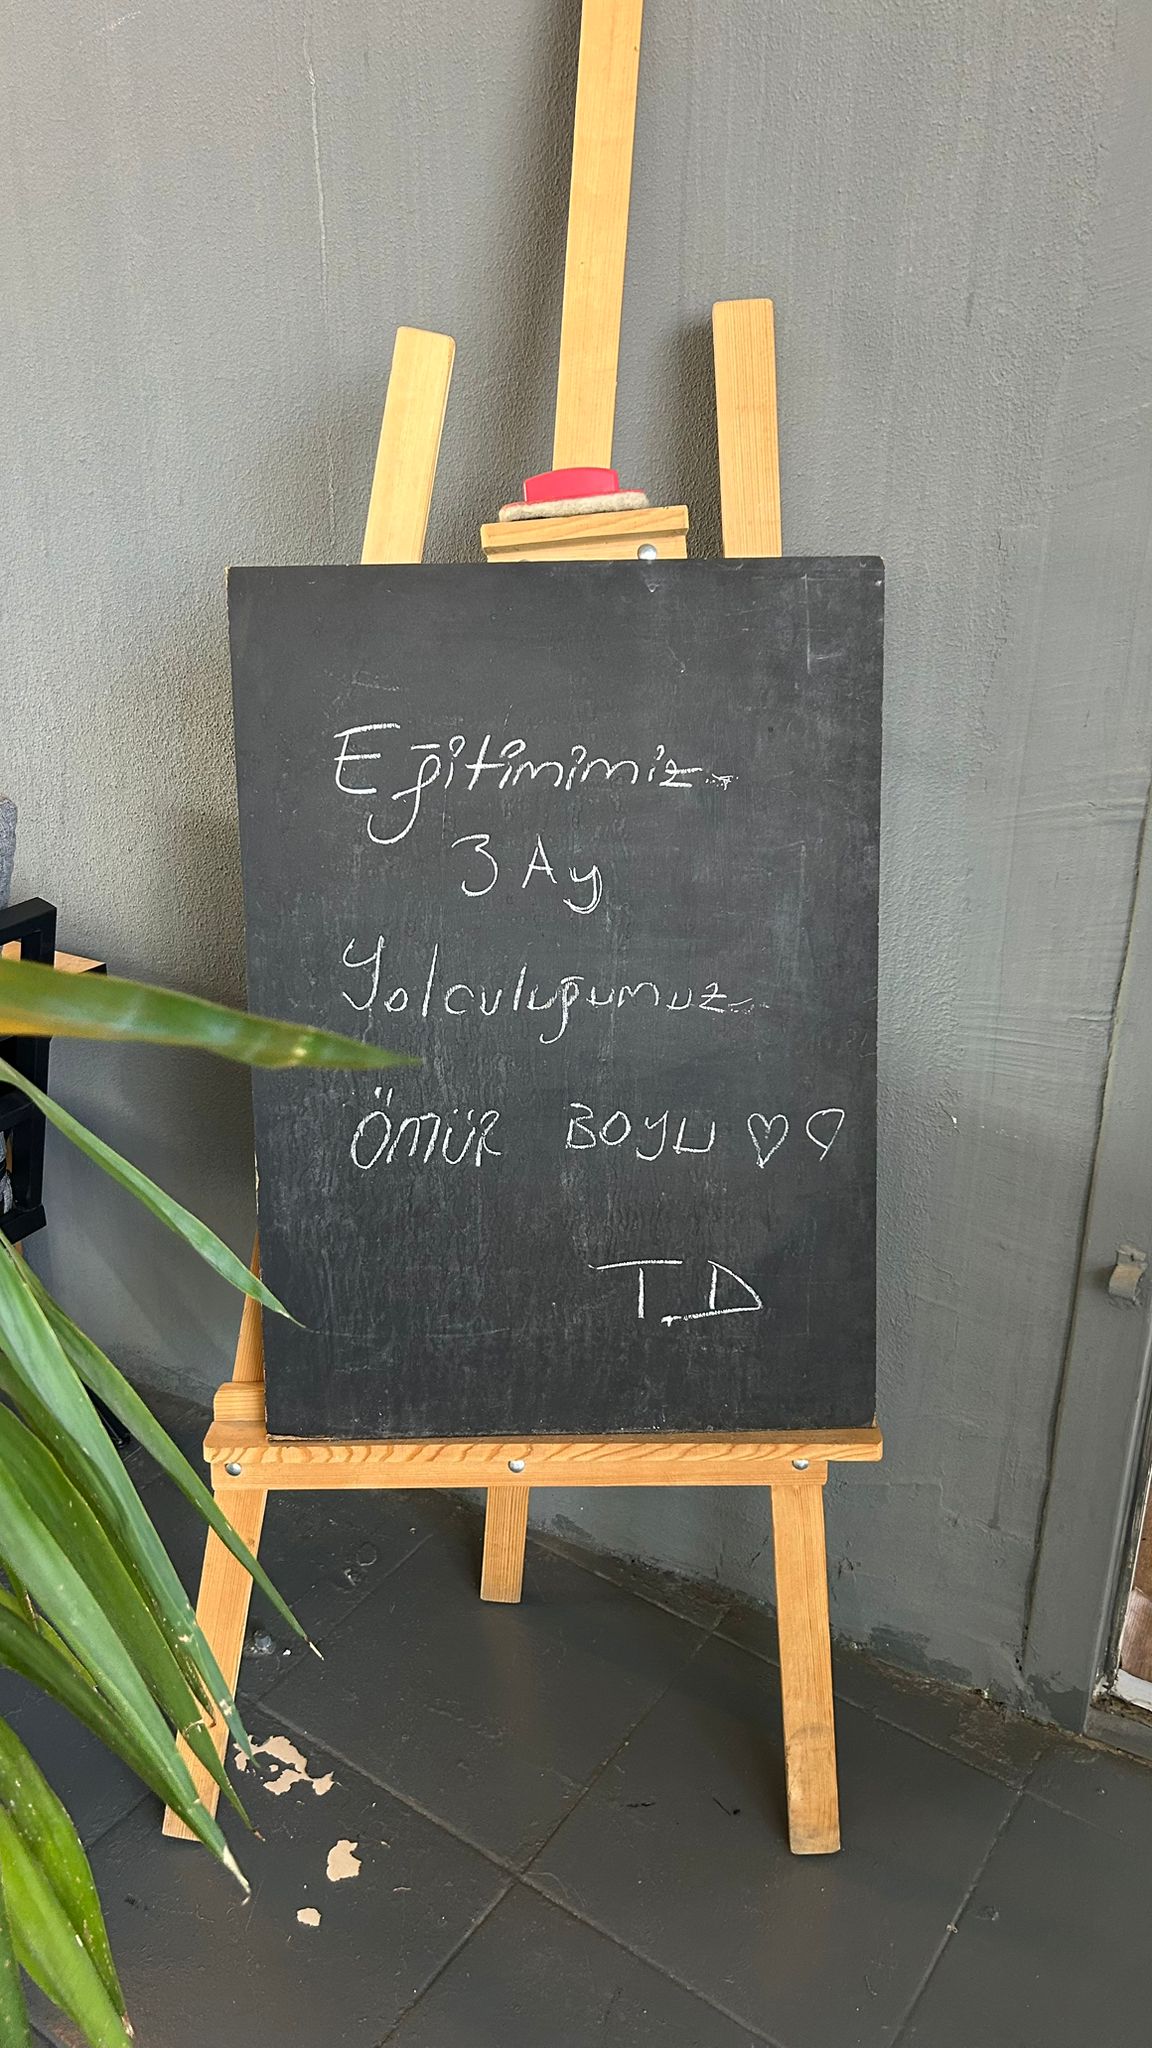 Eğitimimiz
3 Ay
Yolculuğumuz
ÖMÜR BOYU ♡♡
T.D